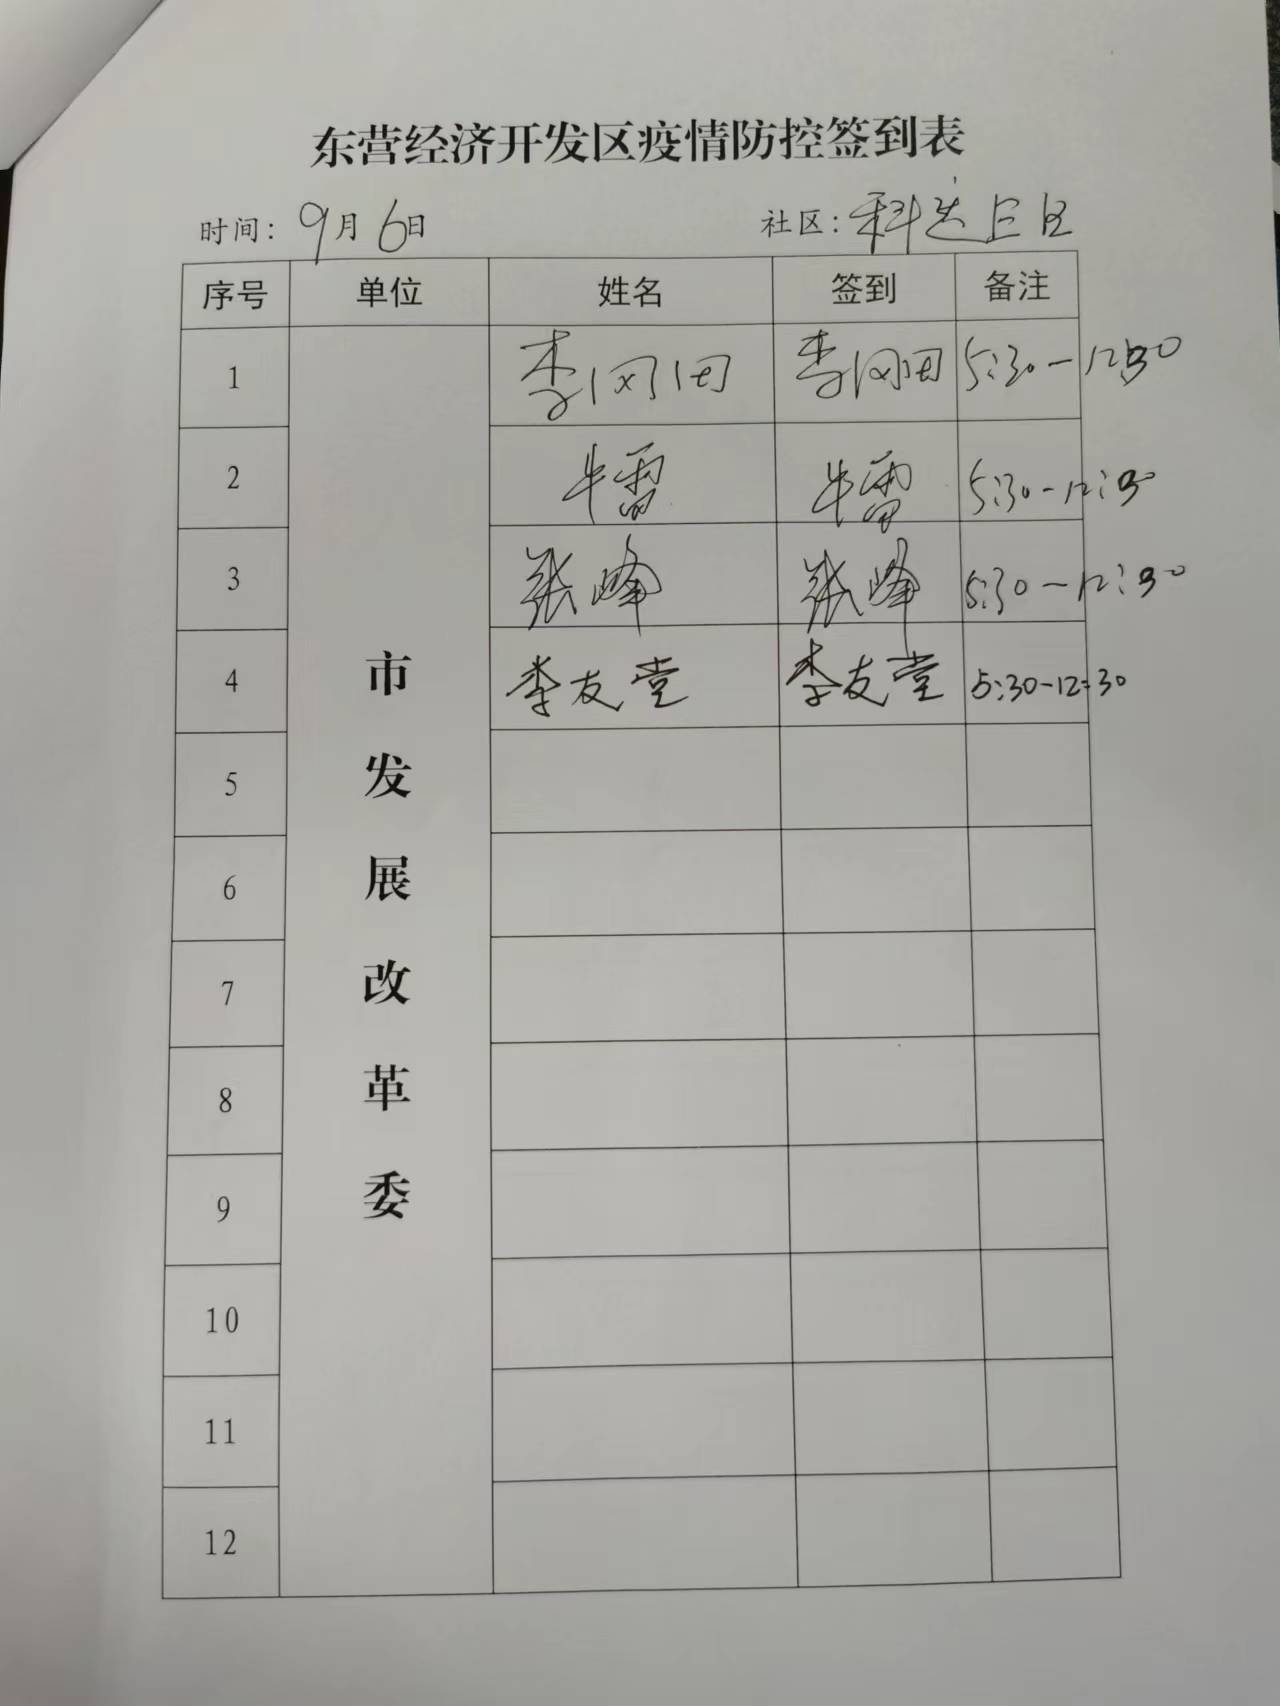 东营经济开发区疫情防控签到表
时间：9月6日 社区：科达E区
序号 单位 姓名 签到 备注
市发展改革委
1 李冈田 李冈田 5:30-12:30
2 牛雷 牛雷 5:30-12:30
3 张峰 张峰 5:30-12:30
4 李友堂 李友堂 5:30-12:30
5
6
7
8
9
10
11
12